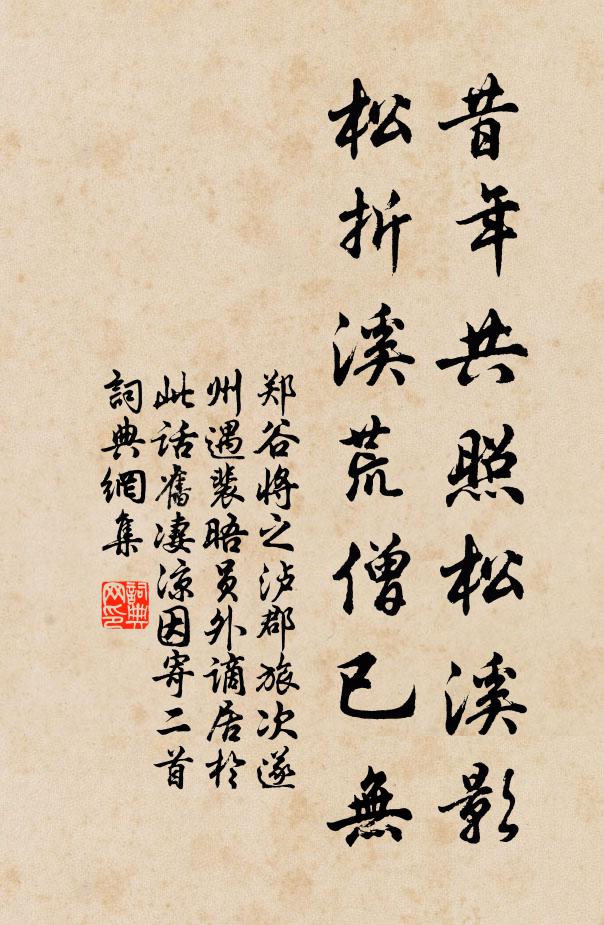 昔年共照松溪影
松折溪荒僧已無
郑谷将之泸郡旅次遂
州遇裴晤员外谪居於
此话舊凄凉因寄二首
詞典網集
詞典
网印